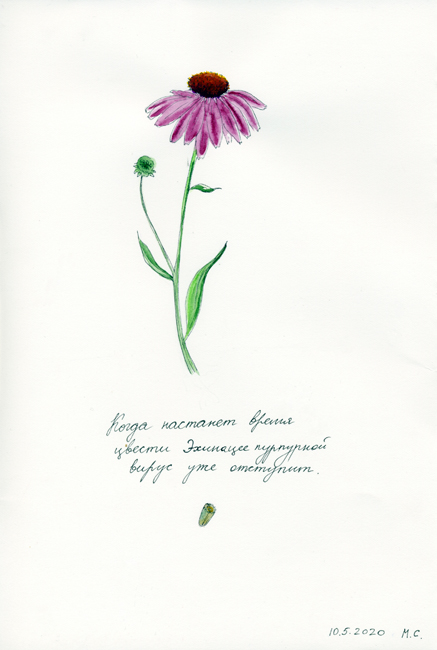 Когда настанет время
цвести Эхинацее пурпурной
вирус уже отступит.
10.5.2020 М.С.